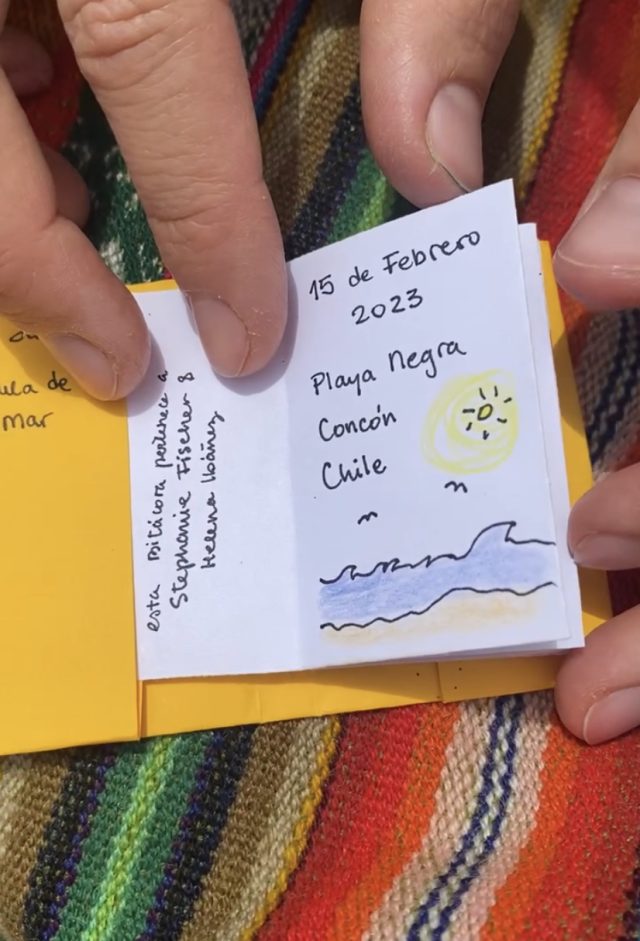 ula de
mar
esta bitácora pertenece a
Stephanie Fischer &
Helena Ibáñez
15 de Febrero
2023
Playa Negra
Concón
Chile